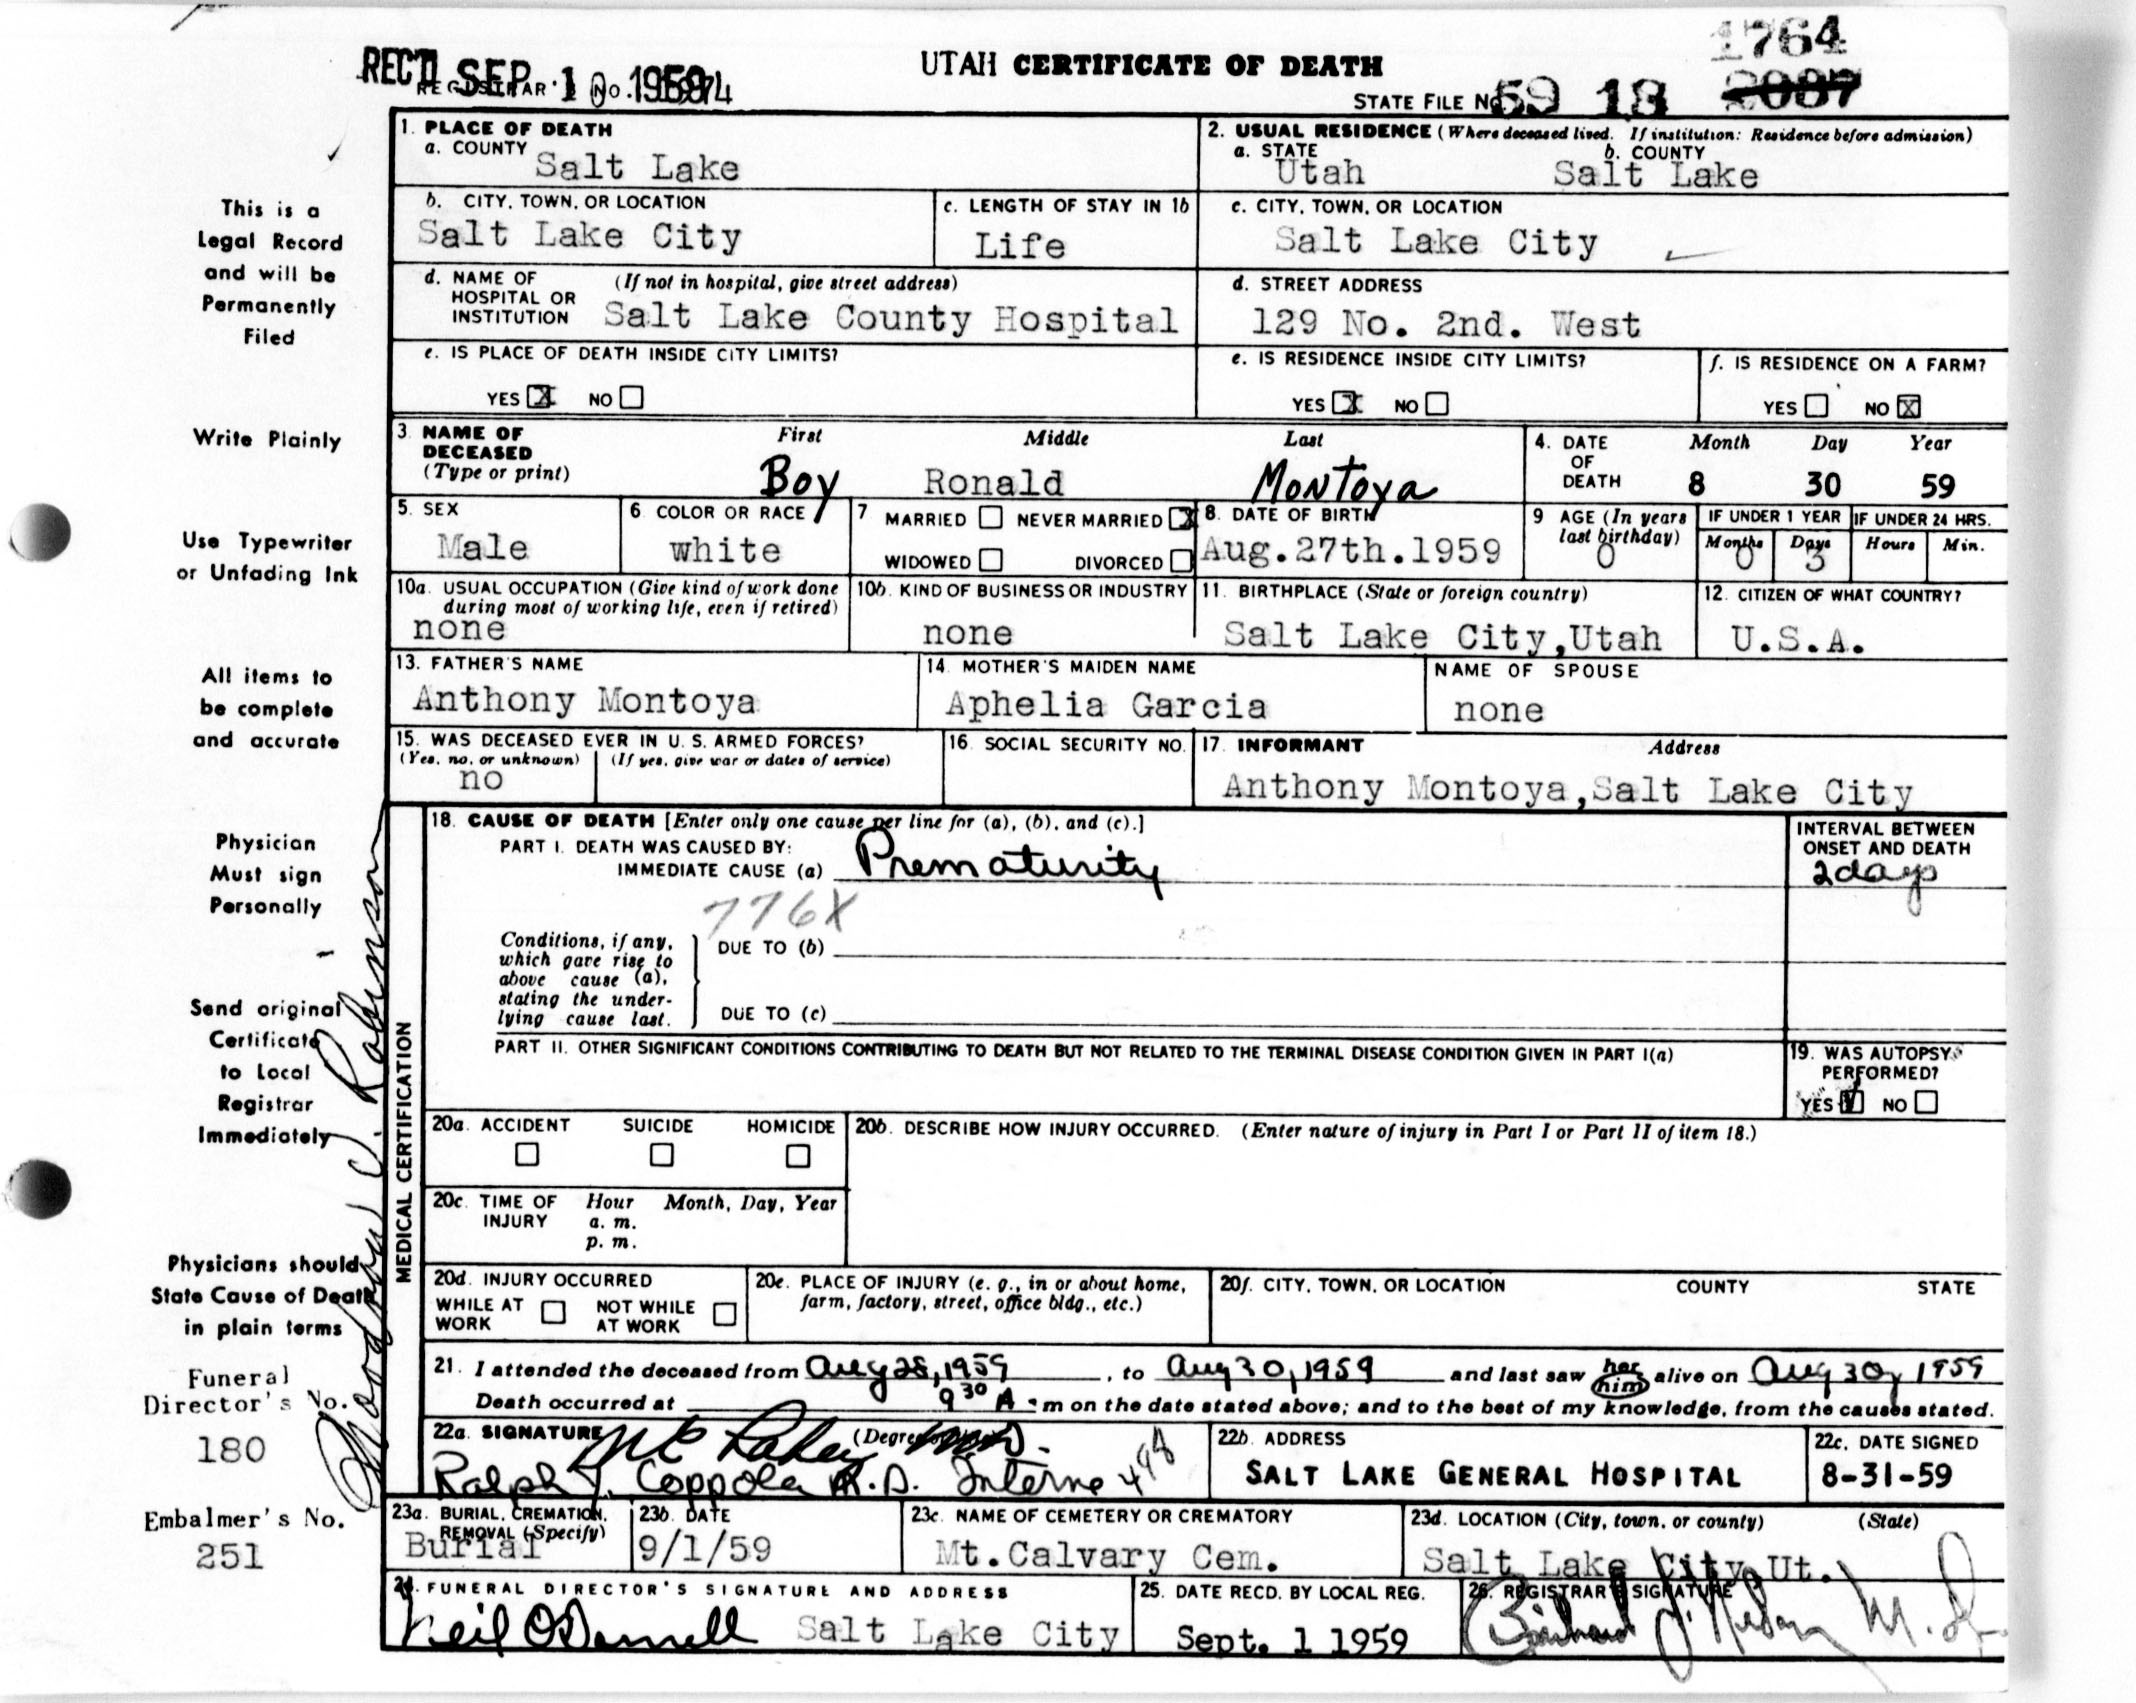 REC'D SEP 10 1959
UTAH CERTIFICATE OF DEATH
1764
REGISTRAR'S NO.
STATE FILE NO. 59 18 2087
1. PLACE OF DEATH
a. COUNTY
Salt Lake
2. USUAL RESIDENCE (Where deceased lived. If institution: Residence before admission)
a. STATE b. COUNTY
Utah Salt Lake
b. CITY, TOWN, OR LOCATION
Salt Lake City
c. LENGTH OF STAY IN 1b
Life
c. CITY, TOWN, OR LOCATION
Salt Lake City
d. NAME OF HOSPITAL OR INSTITUTION (If not in hospital, give street address)
Salt Lake County Hospital
d. STREET ADDRESS
129 No. 2nd. West
e. IS PLACE OF DEATH INSIDE CITY LIMITS?
YES X NO
e. IS RESIDENCE INSIDE CITY LIMITS?
YES X NO
f. IS RESIDENCE ON A FARM?
YES NO X
3. NAME OF DECEASED (Type or print)
First Middle Last
Boy Ronald Montoya
4. DATE OF DEATH
Month Day Year
8 30 59
5. SEX
Male
6. COLOR OR RACE
white
7. MARRIED NEVER MARRIED X
WIDOWED DIVORCED
8. DATE OF BIRTH
Aug.27th.1959
9. AGE (In years last birthday)
0
IF UNDER 1 YEAR
Months Days
0 3
IF UNDER 24 HRS.
Hours Min.
10a. USUAL OCCUPATION (Give kind of work done during most of working life, even if retired)
none
10b. KIND OF BUSINESS OR INDUSTRY
none
11. BIRTHPLACE (State or foreign country)
Salt Lake City,Utah
12. CITIZEN OF WHAT COUNTRY?
U.S.A.
13. FATHER'S NAME
Anthony Montoya
14. MOTHER'S MAIDEN NAME
Aphelia Garcia
NAME OF SPOUSE
none
15. WAS DECEASED EVER IN U. S. ARMED FORCES?
(Yes, no, or unknown) (If yes, give war or dates of service)
no
16. SOCIAL SECURITY NO.
17. INFORMANT Address
Anthony Montoya,Salt Lake City
MEDICAL CERTIFICATION
18. CAUSE OF DEATH [Enter only one cause per line for (a), (b), and (c).]
PART I. DEATH WAS CAUSED BY:
IMMEDIATE CAUSE (a) Prematurity
INTERVAL BETWEEN ONSET AND DEATH
2 days
776X
Conditions, if any, which gave rise to above cause (a), stating the underlying cause last.
DUE TO (b)
DUE TO (c)
PART II. OTHER SIGNIFICANT CONDITIONS CONTRIBUTING TO DEATH BUT NOT RELATED TO THE TERMINAL DISEASE CONDITION GIVEN IN PART I(a)
19. WAS AUTOPSY PERFORMED?
YES NO
20a. ACCIDENT SUICIDE HOMICIDE
20b. DESCRIBE HOW INJURY OCCURRED. (Enter nature of injury in Part I or Part II of item 18.)
20c. TIME OF INJURY Hour Month, Day, Year
a. m.
p. m.
20d. INJURY OCCURRED
WHILE AT WORK NOT WHILE AT WORK
20e. PLACE OF INJURY (e. g., in or about home, farm, factory, street, office bldg., etc.)
20f. CITY, TOWN, OR LOCATION COUNTY STATE
21. I attended the deceased from Aug 28, 1959, to Aug 30, 1959 and last saw her him alive on Aug 30, 1959
Death occurred at 9 30 A. m on the date stated above; and to the best of my knowledge, from the causes stated.
22a. SIGNATURE
Ralph J. Coppola M.D. Interne
22b. ADDRESS
SALT LAKE GENERAL HOSPITAL
22c. DATE SIGNED
8-31-59
23a. BURIAL, CREMATION, REMOVAL (Specify)
Burial
23b. DATE
9/1/59
23c. NAME OF CEMETERY OR CREMATORY
Mt.Calvary Cem.
23d. LOCATION (City, town, or county) (State)
Salt Lake City Ut.
24. FUNERAL DIRECTOR'S SIGNATURE AND ADDRESS
Neil O'Donnell Salt Lake City
25. DATE RECD. BY LOCAL REG.
Sept. 1 1959
26. REGISTRAR'S SIGNATURE
This is a
Legal Record
and will be
Permanently
Filed
Write Plainly
Use Typewriter
or Unfading Ink
All items to
be complete
and accurate
Physician
Must sign
Personally
Send original
Certificate
to Local
Registrar
Immediately
Physicians should
State Cause of Death
in plain terms
Funeral
Director's No.
180
Embalmer's No.
251
Robinson